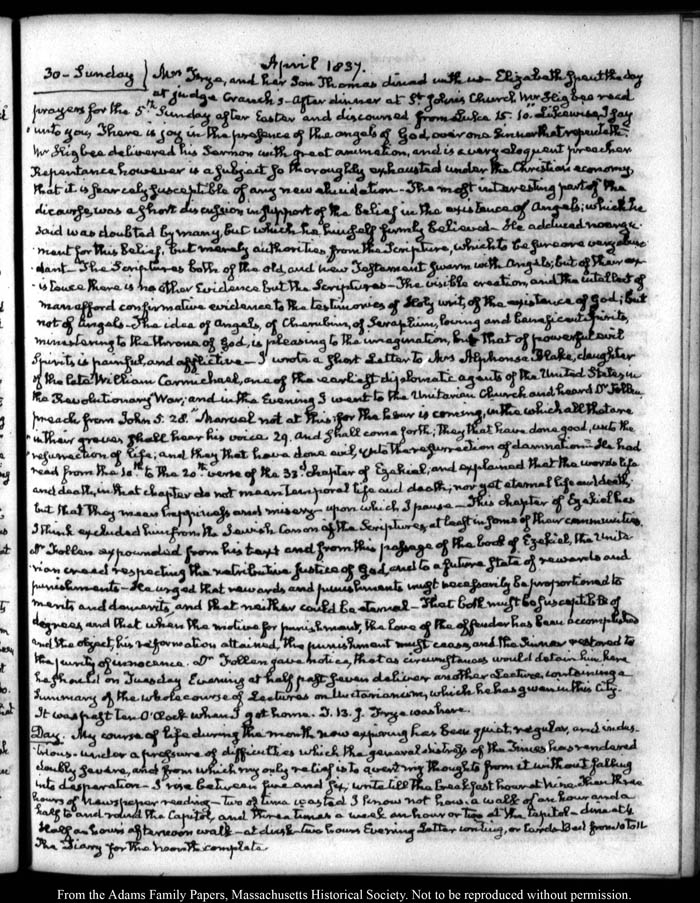 April 1837.
30 - Sunday } Mrs Frye, and her Son Thomas dined with us - Elizabeth spent the day
at Judge Cranch's - After dinner at St. John's Church Mr Higbee read
prayers for the 5th Sunday after Easter and discoursed from Luke 15. 10. Likewise I say
unto you, There is joy in the presence of the angels of God, over one Sinner that repenteth.
Mr Higbee delivered his Sermon with great animation, and is a very eloquent preacher
Repentance however is a subject so thoroughly exhausted under the Christian economy,
that it is scarcely susceptible of any new elucidation - The most interesting part of the
dicourse, was a short discussion in support of the belief in the existence of Angels; which he
said was doubted by many, but which he himself firmly believed - He adduced no argu-
ment for this belief, but merely authorities from the Scripture, which to be sure are very abun-
dant - The Scriptures both of the old, and new Testament swarm with Angels; but of their ex-
istence there is no other Evidence but the Scriptures - The visible creation, and the intellect of
man afford confirmative evidence to the testimonies of Holy writ, of the existence of God; but
not of Angels - The idea of Angels, of Cherubim, of Seraphim, loving and beneficent Spirits,
ministering to the throne of God, is pleasing to the imagination, but that of powerful evil
Spirits is painful, and afflictive - I wrote a short Letter to Mrs Alphonsa Blake, daughter
of the late William Carmichael, one of the earliest diplomatic agents of the United States, in
the Revolutionary War; and in the Evening I went to the Unitarian Church and heard Dr Follen
preach from John 5. 28. "Marvel not at this: for the hour is coming, in the which all that are
in their graves shall hear his voice 29. And shall come forth; they that have done good, unto the
resurrection of life; and they that have done evil, unto the resurrection of damnation" - He had
read from the 10th to the 20th verse of the 33d chapter of Ezekiel; and explained that the words life
and death, in that chapter do not mean temporal life and death; nor yet eternal life and death;
but that they mean happiness and misery - upon which I pause - This chapter of Ezekiel has
I think excluded him from the Jewish Canon of the Scriptures, at least in some of their communities.
Dr Follen expounded from his text and from this passage of the book of Ezekiel, the Unita-
rian creed respecting the retributive justice of God, and to a future State of rewards and
punishments - He urged that rewards and punishments must necessarily be proportioned to
merits and demerits, and that neither could be eternal - That both must be susceptible of
degrees and that when the motive for punishment, the love of the offender has been accomplished
and the object, his reformation attained, the punishment must cease, and the Sinner restored to
the purity of innocence. Dr Follen gave notice, that as circumstances would detain him here
he should on Tuesday Evening at half past seven deliver another Lecture, containing a
Summary of the whole course of Lectures on Unitarianism, which he has given in this City.
It was past ten O'Clock when I got home. T. B. J. Frye was here.
Day. My course of life during the month now expiring has been quiet, regular, and indus-
trious - under a pressure of difficulties which the general distress of the Times has rendered
doubly severe, and from which my only relief is to avert my thoughts from it without falling
into desperation - I rise between five and six; write till the breakfast hour at nine. Then three
hours of Newspaper reading - two of time wasted I know not how. a walk of an hour and a
half to and round the Capitol, and three times a week an hour or two at the Capitol - dine at 4
Half an hours afternoon walk - at dusk - two hours Evening Letter writing, or cards Bed from 10 to 11
The Diary for the month complete
From the Adams Family Papers, Massachusetts Historical Society. Not to be reproduced without permission.